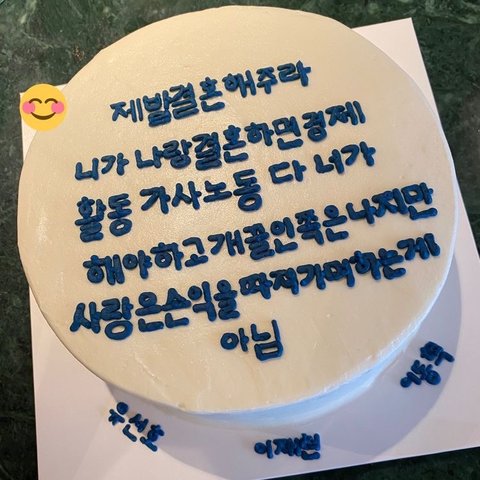 제발결혼해주라
니가 나랑결혼하면경제
활동 가사노동 다 너가
해야하고개꼴인쪽은나지만
사랑은손익을따져가며하는게
아님
윤선호
이재현
이동혁